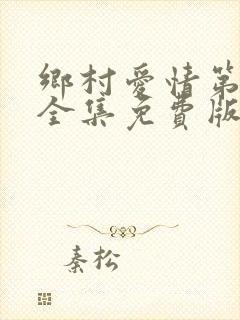 鄉村愛情第
全集免費版
秦松